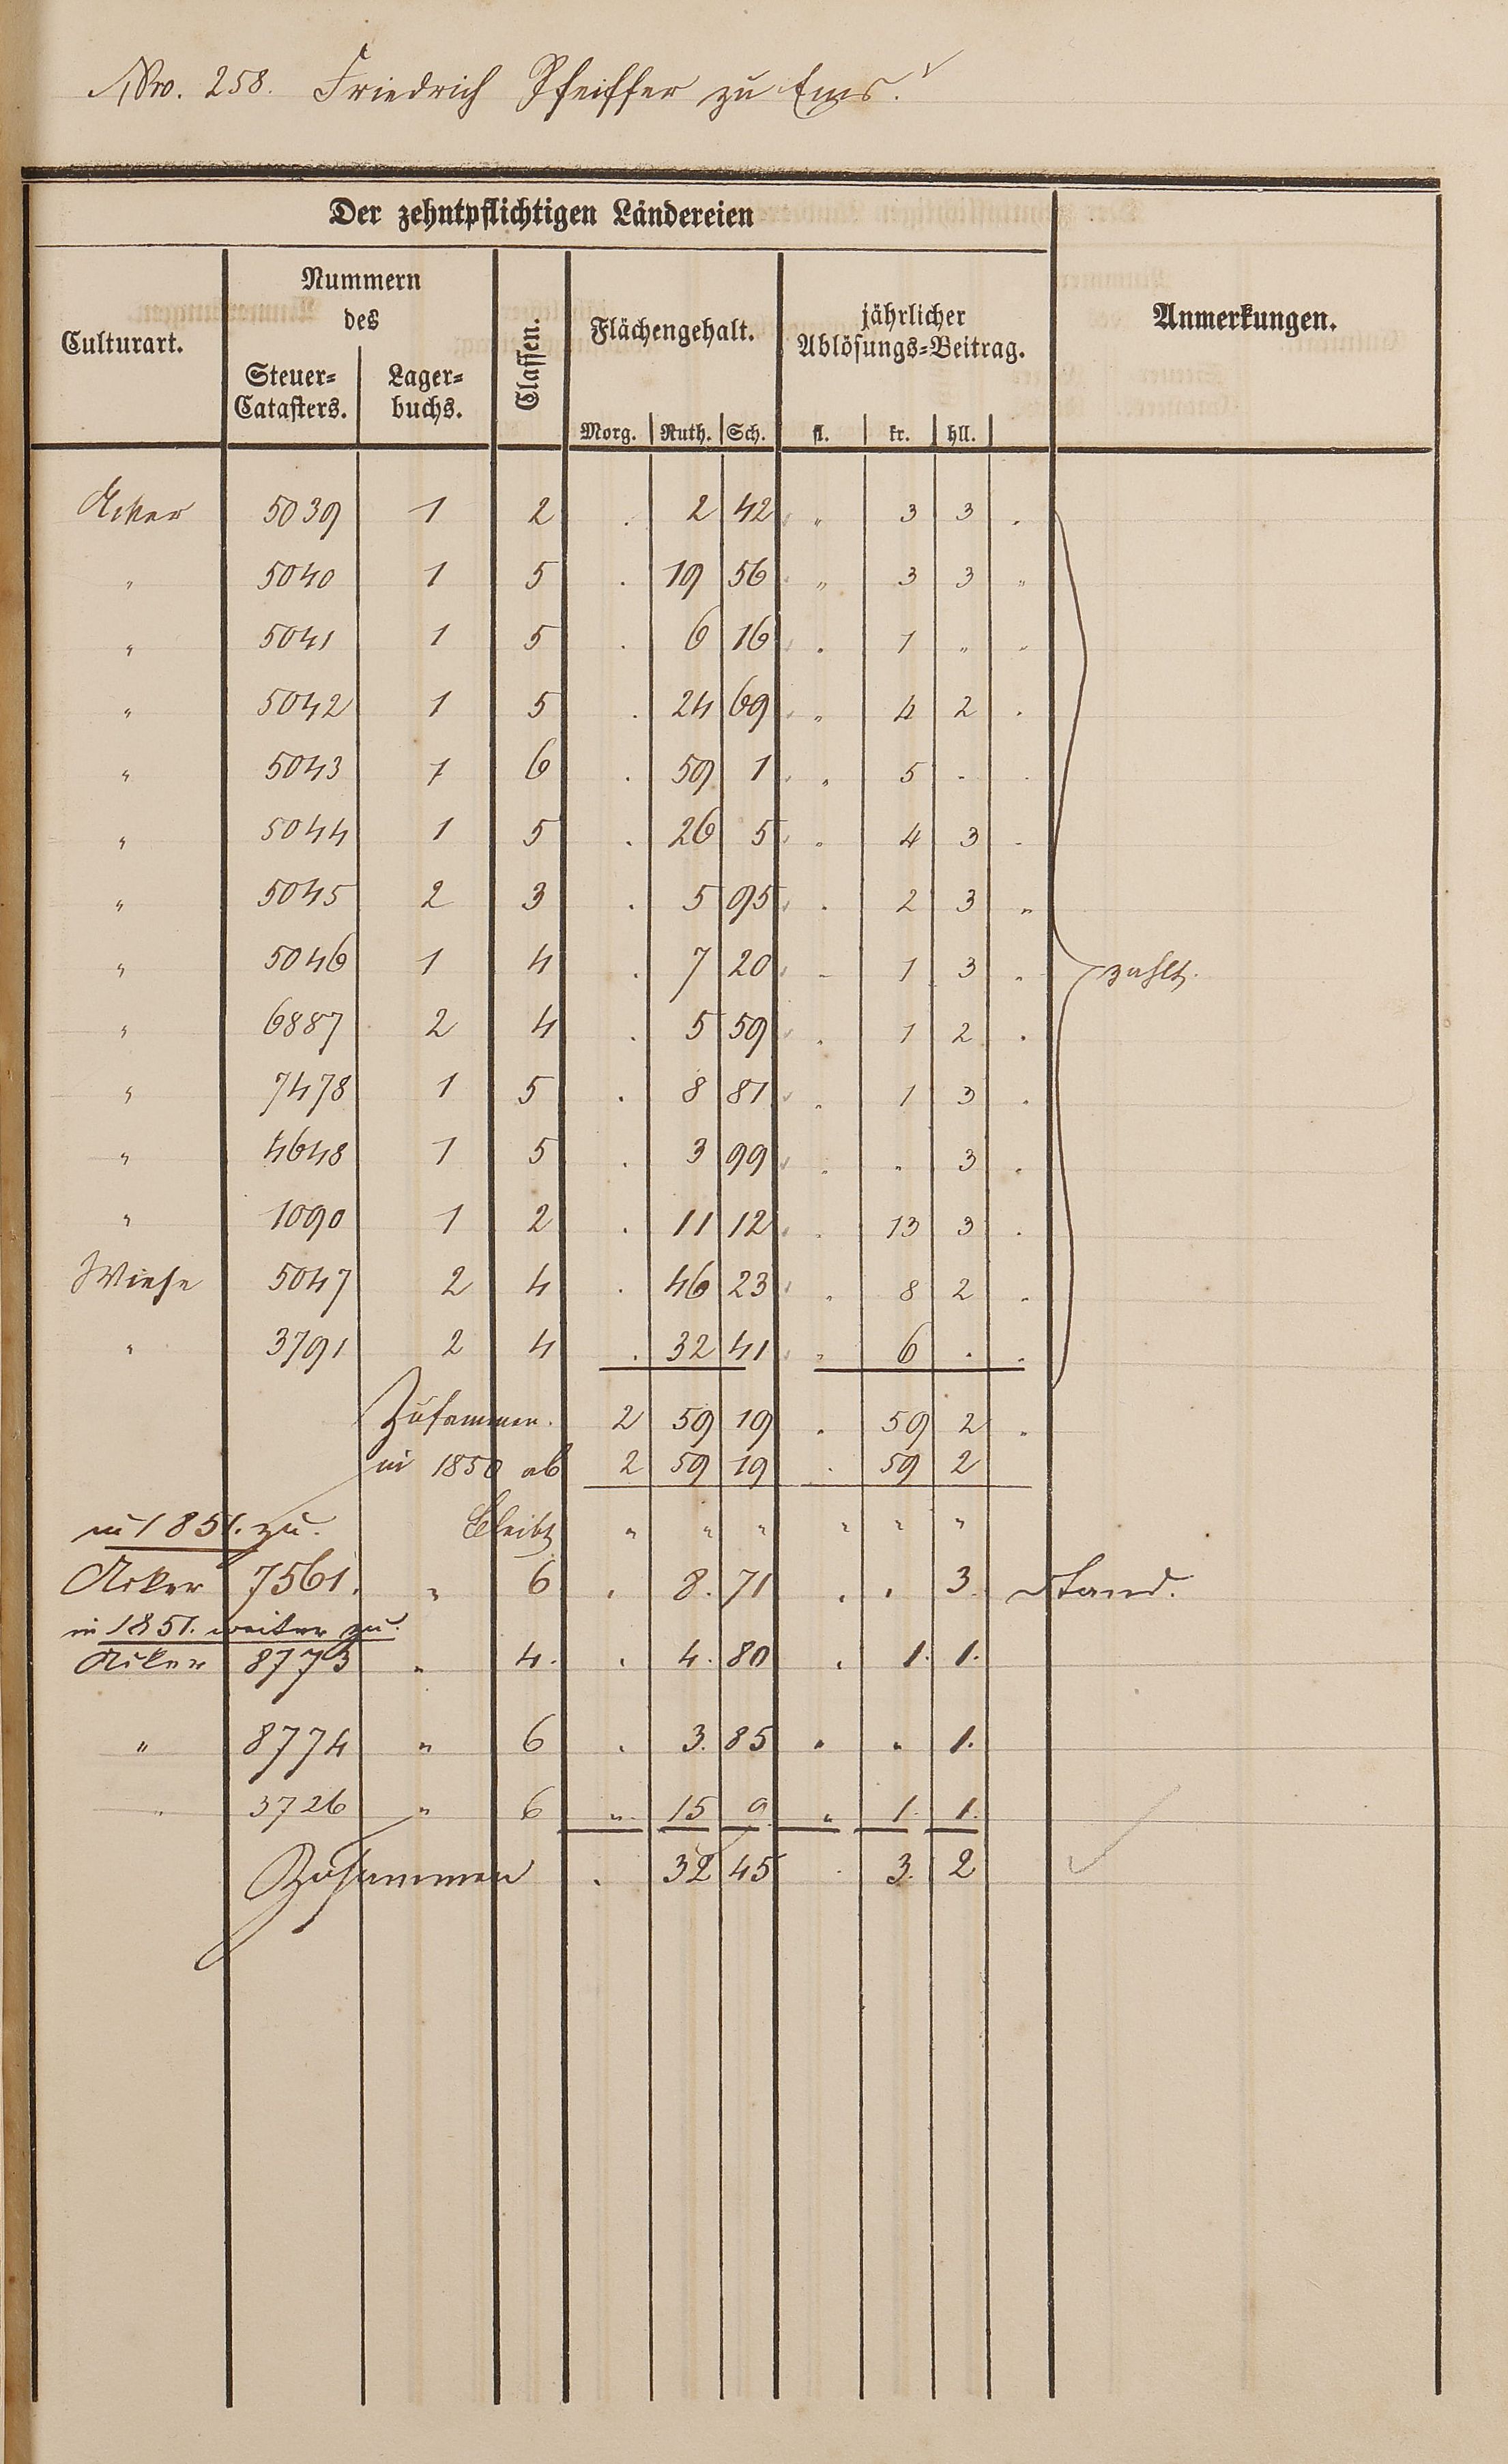 Nro. 258. Friedrich Pfeiffer zu Ems.
Der zehntpflichtigen Ländereien
Culturart.
Nummern
des
Steuer=
Catasters.
Lager=
buchs.
Classen.
Flächengehalt.
Morg. Ruth. Sch.
jährlicher
Ablösungs=Beitrag.
fl. kr. hll.
Anmerkungen.
Acker 5039 1 2 . 2 42 " 3 3 .
" 5040 1 5 . 19 56 " 3 3 "
" 5041 1 5 . 6 16 . 1 " "
" 5042 1 5 . 24 69 " 4 2 .
" 5043 1 6 . 59 1 " 5 - .
" 5044 1 5 . 26 5 " 4 3 -
" 5045 2 3 . 5 95 . 2 3 "
" 5046 1 4 . 7 20 - 1 3 . zahlt.
" 6887 2 4 . 5 59 . 1 2 .
" 7478 1 5 . 8 81 . 1 3 .
" 4648 1 5 . 3 99 . " 3 .
" 1090 1 2 . 11 12 . 13 3 .
Wiese 5047 2 4 . 46 23 . 8 2 .
" 3791 2 4 . 32 41 " 6 . .
Zusammen. 2 59 19 . 59 2 .
in 1850 ab 2 59 19 . 59 2
Bleibt " " " " " "
in 1851. zu.
Acker 7561. " 6 . 8. 71 . . 3. Stand.
in 1851. weiter zu.
Acker 8773 " 4. . 4. 80 . 1. 1.
" 8774 " 6 . 3. 85 . " 1.
" 3726 " 6 " 15 9 " 1. 1.
Zusammen . 32 45 . 3. 2